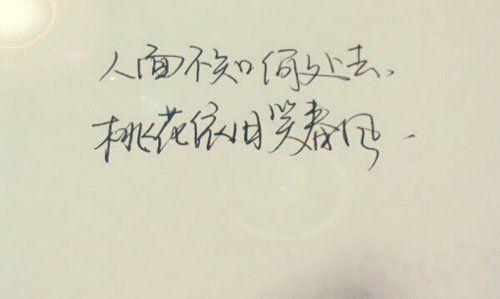 人面不知何处去，
桃花依旧笑春风．